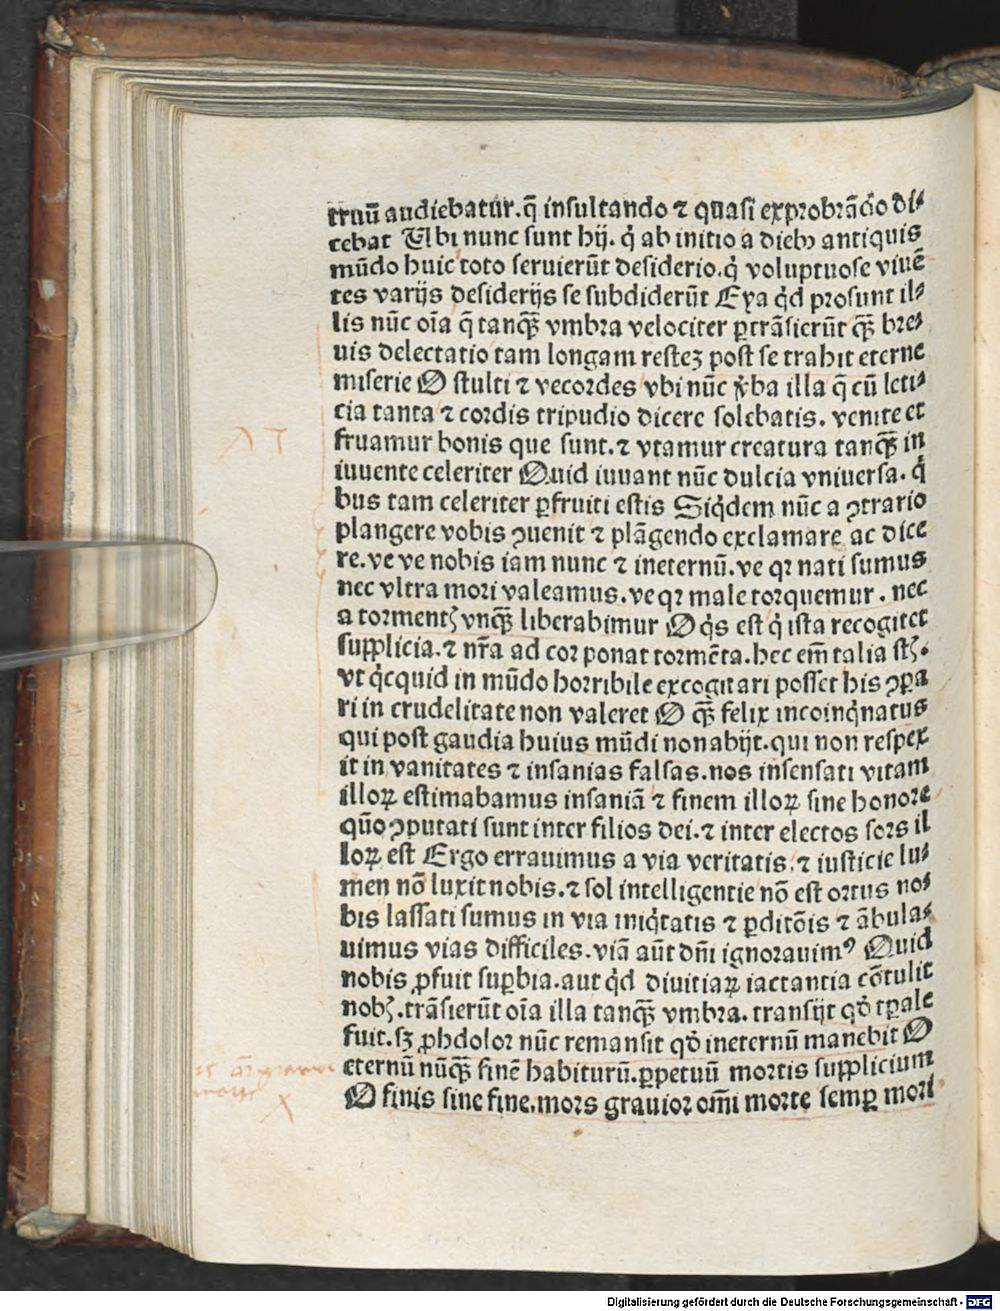 trnū audiebatur. q̄ insultando ⁊ quasi exprobrādo di⸗
cebat Ubi nunc sunt hij. q̇ ab initio a dieb⁹ antiquis
mūdo huic toto seruierūt desiderio. q̇ voluptuose viuē
tes varijs desiderijs se subdiderūt Eya q̇d prosunt il⸗
lis nūc oīa q̄ tanꝙ̄ vmbra velociter ꝑtrāsierūt ꝙ̄ bre⸗
uis delectatio tam longam restez post se trahit eterne
miserie O stulti ⁊ vecordes vbi nūc v̇ba illa q̄ cū leti⸗
cia tanta ⁊ cordis tripudio dicere solebatis. venite et
fruamur bonis que sunt. ⁊ vtamur creatura tanꝙ̄ in
iuuente celeriter Quid iuuant nūc dulcia vniuersa. q̇
bus tam celeriter ꝑfruiti estis Siq̇dem nūc a ꝯtrario
plangere vobis ꝯuenit ⁊ plāgendo exclamare ac dice
re. ve ve nobis iam nunc ⁊ ineternū. ve qꝛ nati sumus
nec vltra mori valeamus. ve qꝛ male torquemur. nec
a tormentꝭ vnꝙ̄ liberabimur O q̇s est q̇ ista recogitet
supplicia. ⁊ nr̄a ad cor ponat tormēta. hec em̄ talia st̄ꝭ.
vt q̇cquid in mūdo horribile excogitari posset his ꝯpa
ri in crudelitate non valeret O ꝙ̄ felix incoinq̇natus
qui post gaudia huius mūdi non abijt. qui non respex
it in vanitates ⁊ insanias falsas. nos insensati vitam
illoꝝ estimabamus insaniā ⁊ finem illoꝝ sine honore
quō ꝯputati sunt inter filios dei. ⁊ inter electos sors il
loꝝ est Ergo errauimus a via veritatis. ⁊ iusticie lu⸗
men nō luxit nobis. ⁊ sol intelligentie nō est ortus no⸗
bis lassati sumus in via iniq̇tatis ⁊ ꝑditōis ⁊ ābula⸗
uimus vias difficiles. viā aūt dn̄i ignorauimꝰ Quid
nobis ꝓfuit suꝑbia. aut q̇d diuitiaꝝ iactantia cōtulit
nobꝭ. trāsierūt oīa illa tanꝙ̄ vmbra. transijt qḋ tꝑale
fuit. sꝫ ꝓhdolor nūc remansit qḋ ineternū manebit O
eternū nūꝙ̄ finē habiturū. ꝑpetuū mortis supplicium
O finis sine fine. mors grauior om̄i morte semꝑ mori
Digitalisierung gefördert durch die Deutsche Forschungsgemeinschaft - DFG